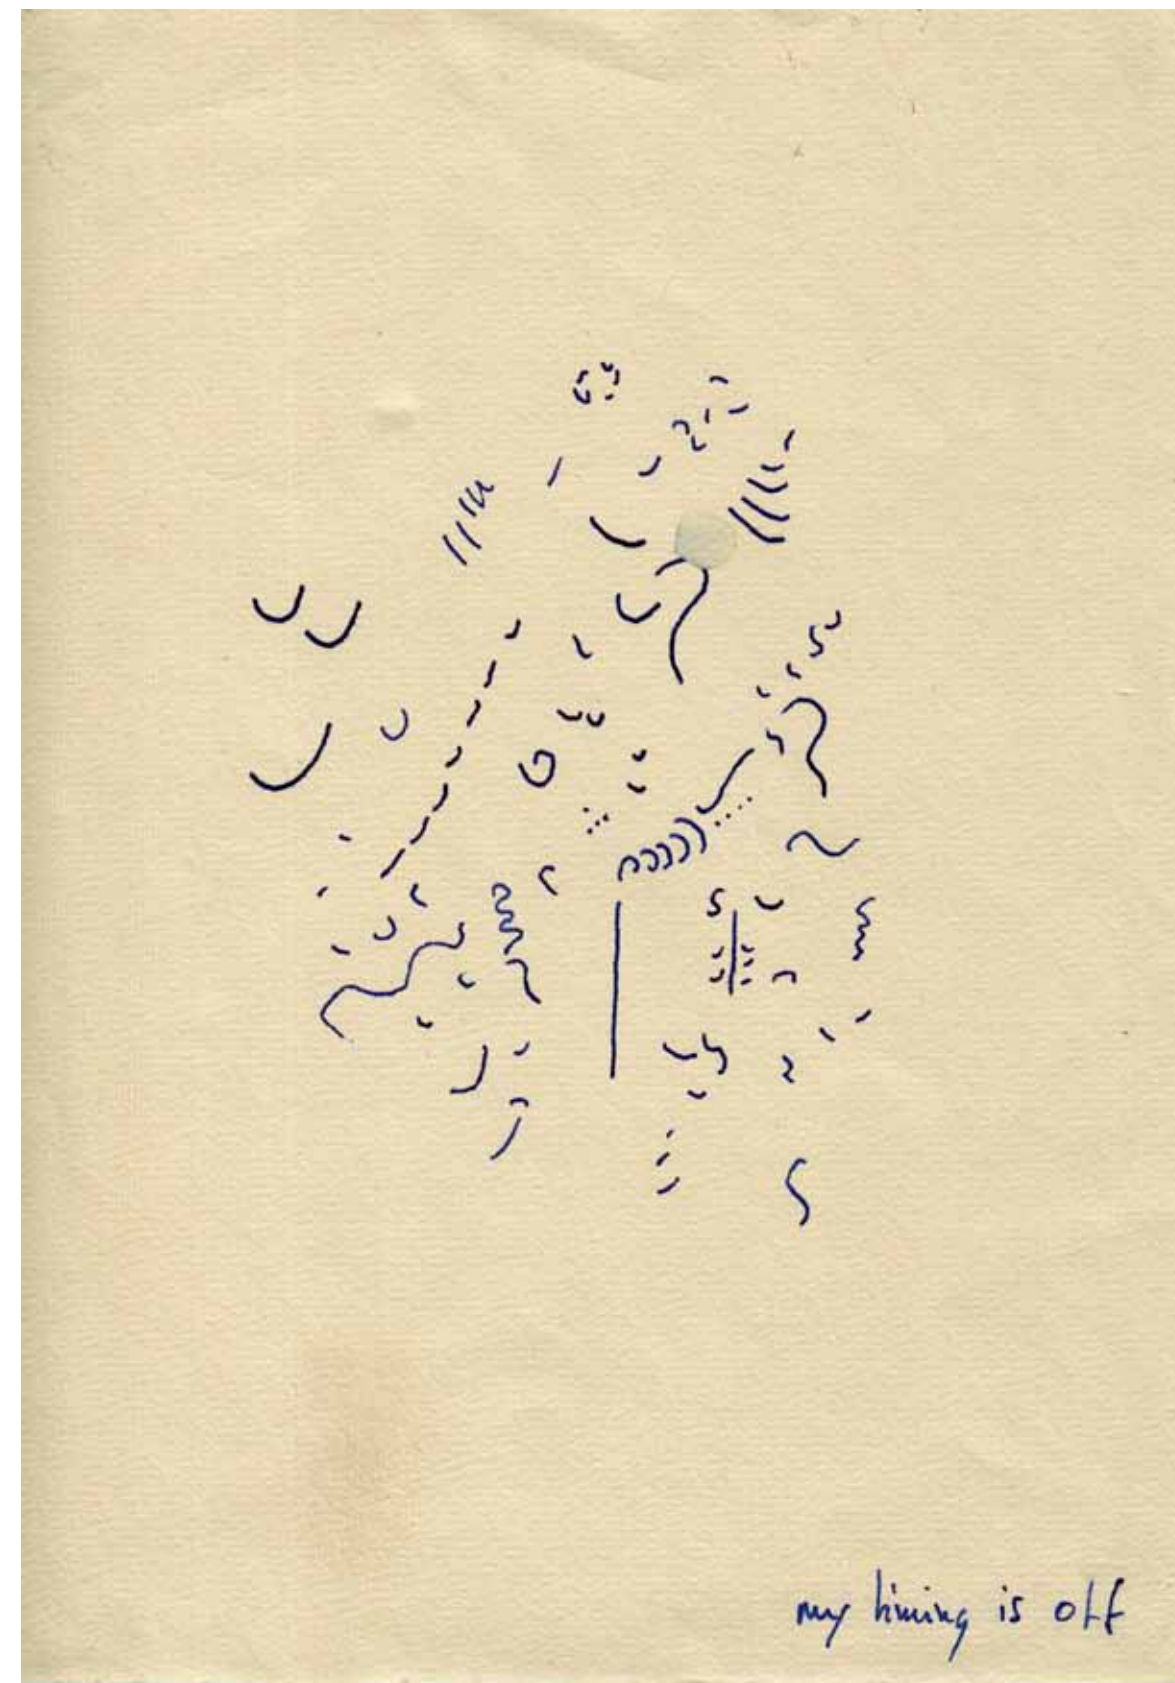 my timing is off